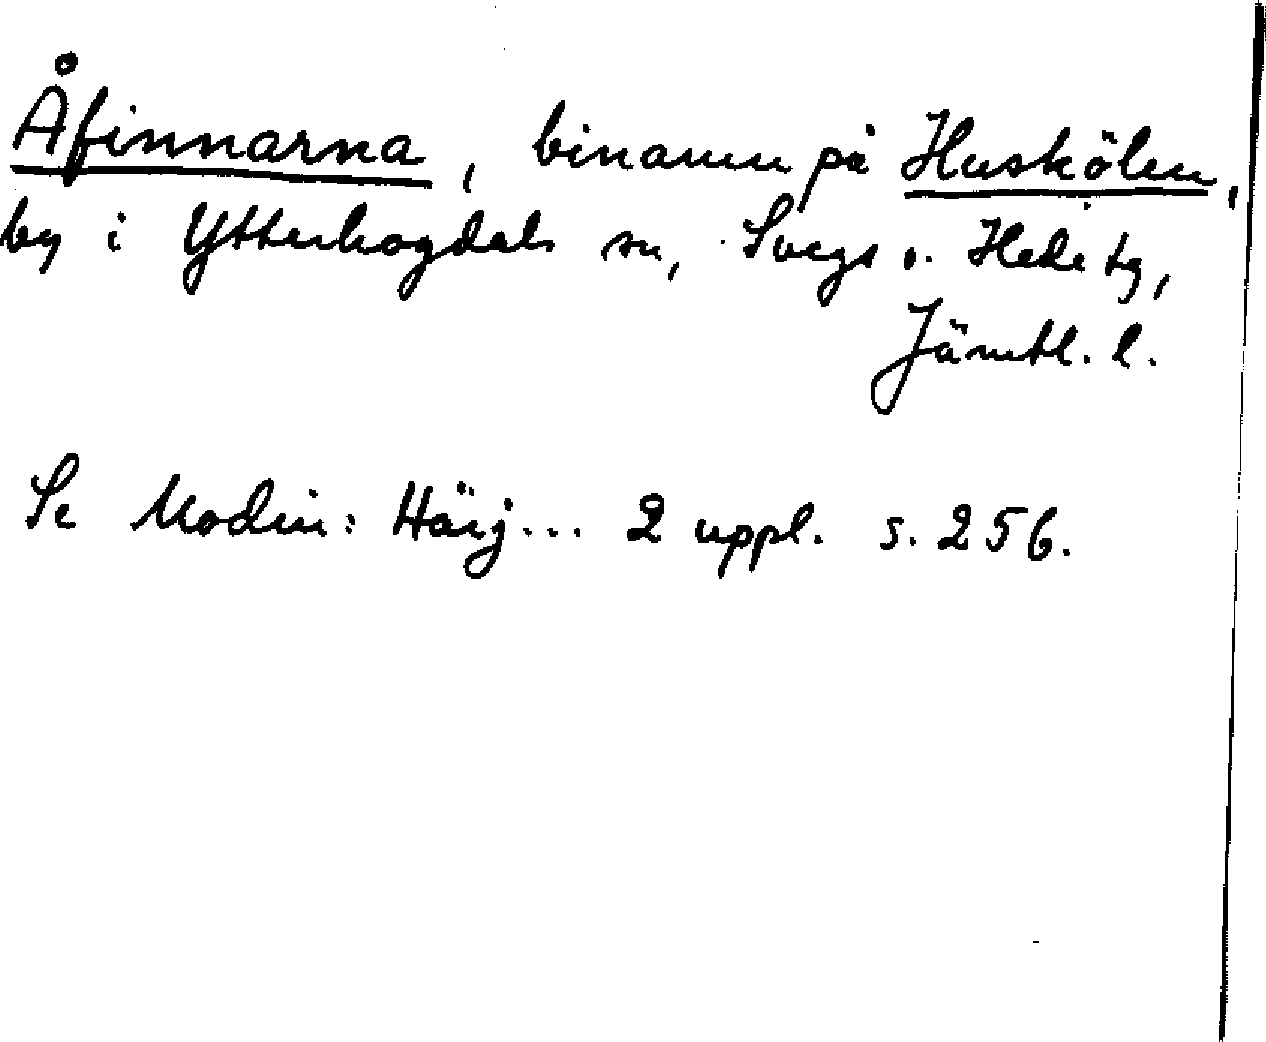 Åfinnarna, binamn på Huskölen,
by i Ytterhogdals sn, Svegs o. Hede tg,
Jämtl. l.
Se Modin: Härj... 2 uppl. s. 256.